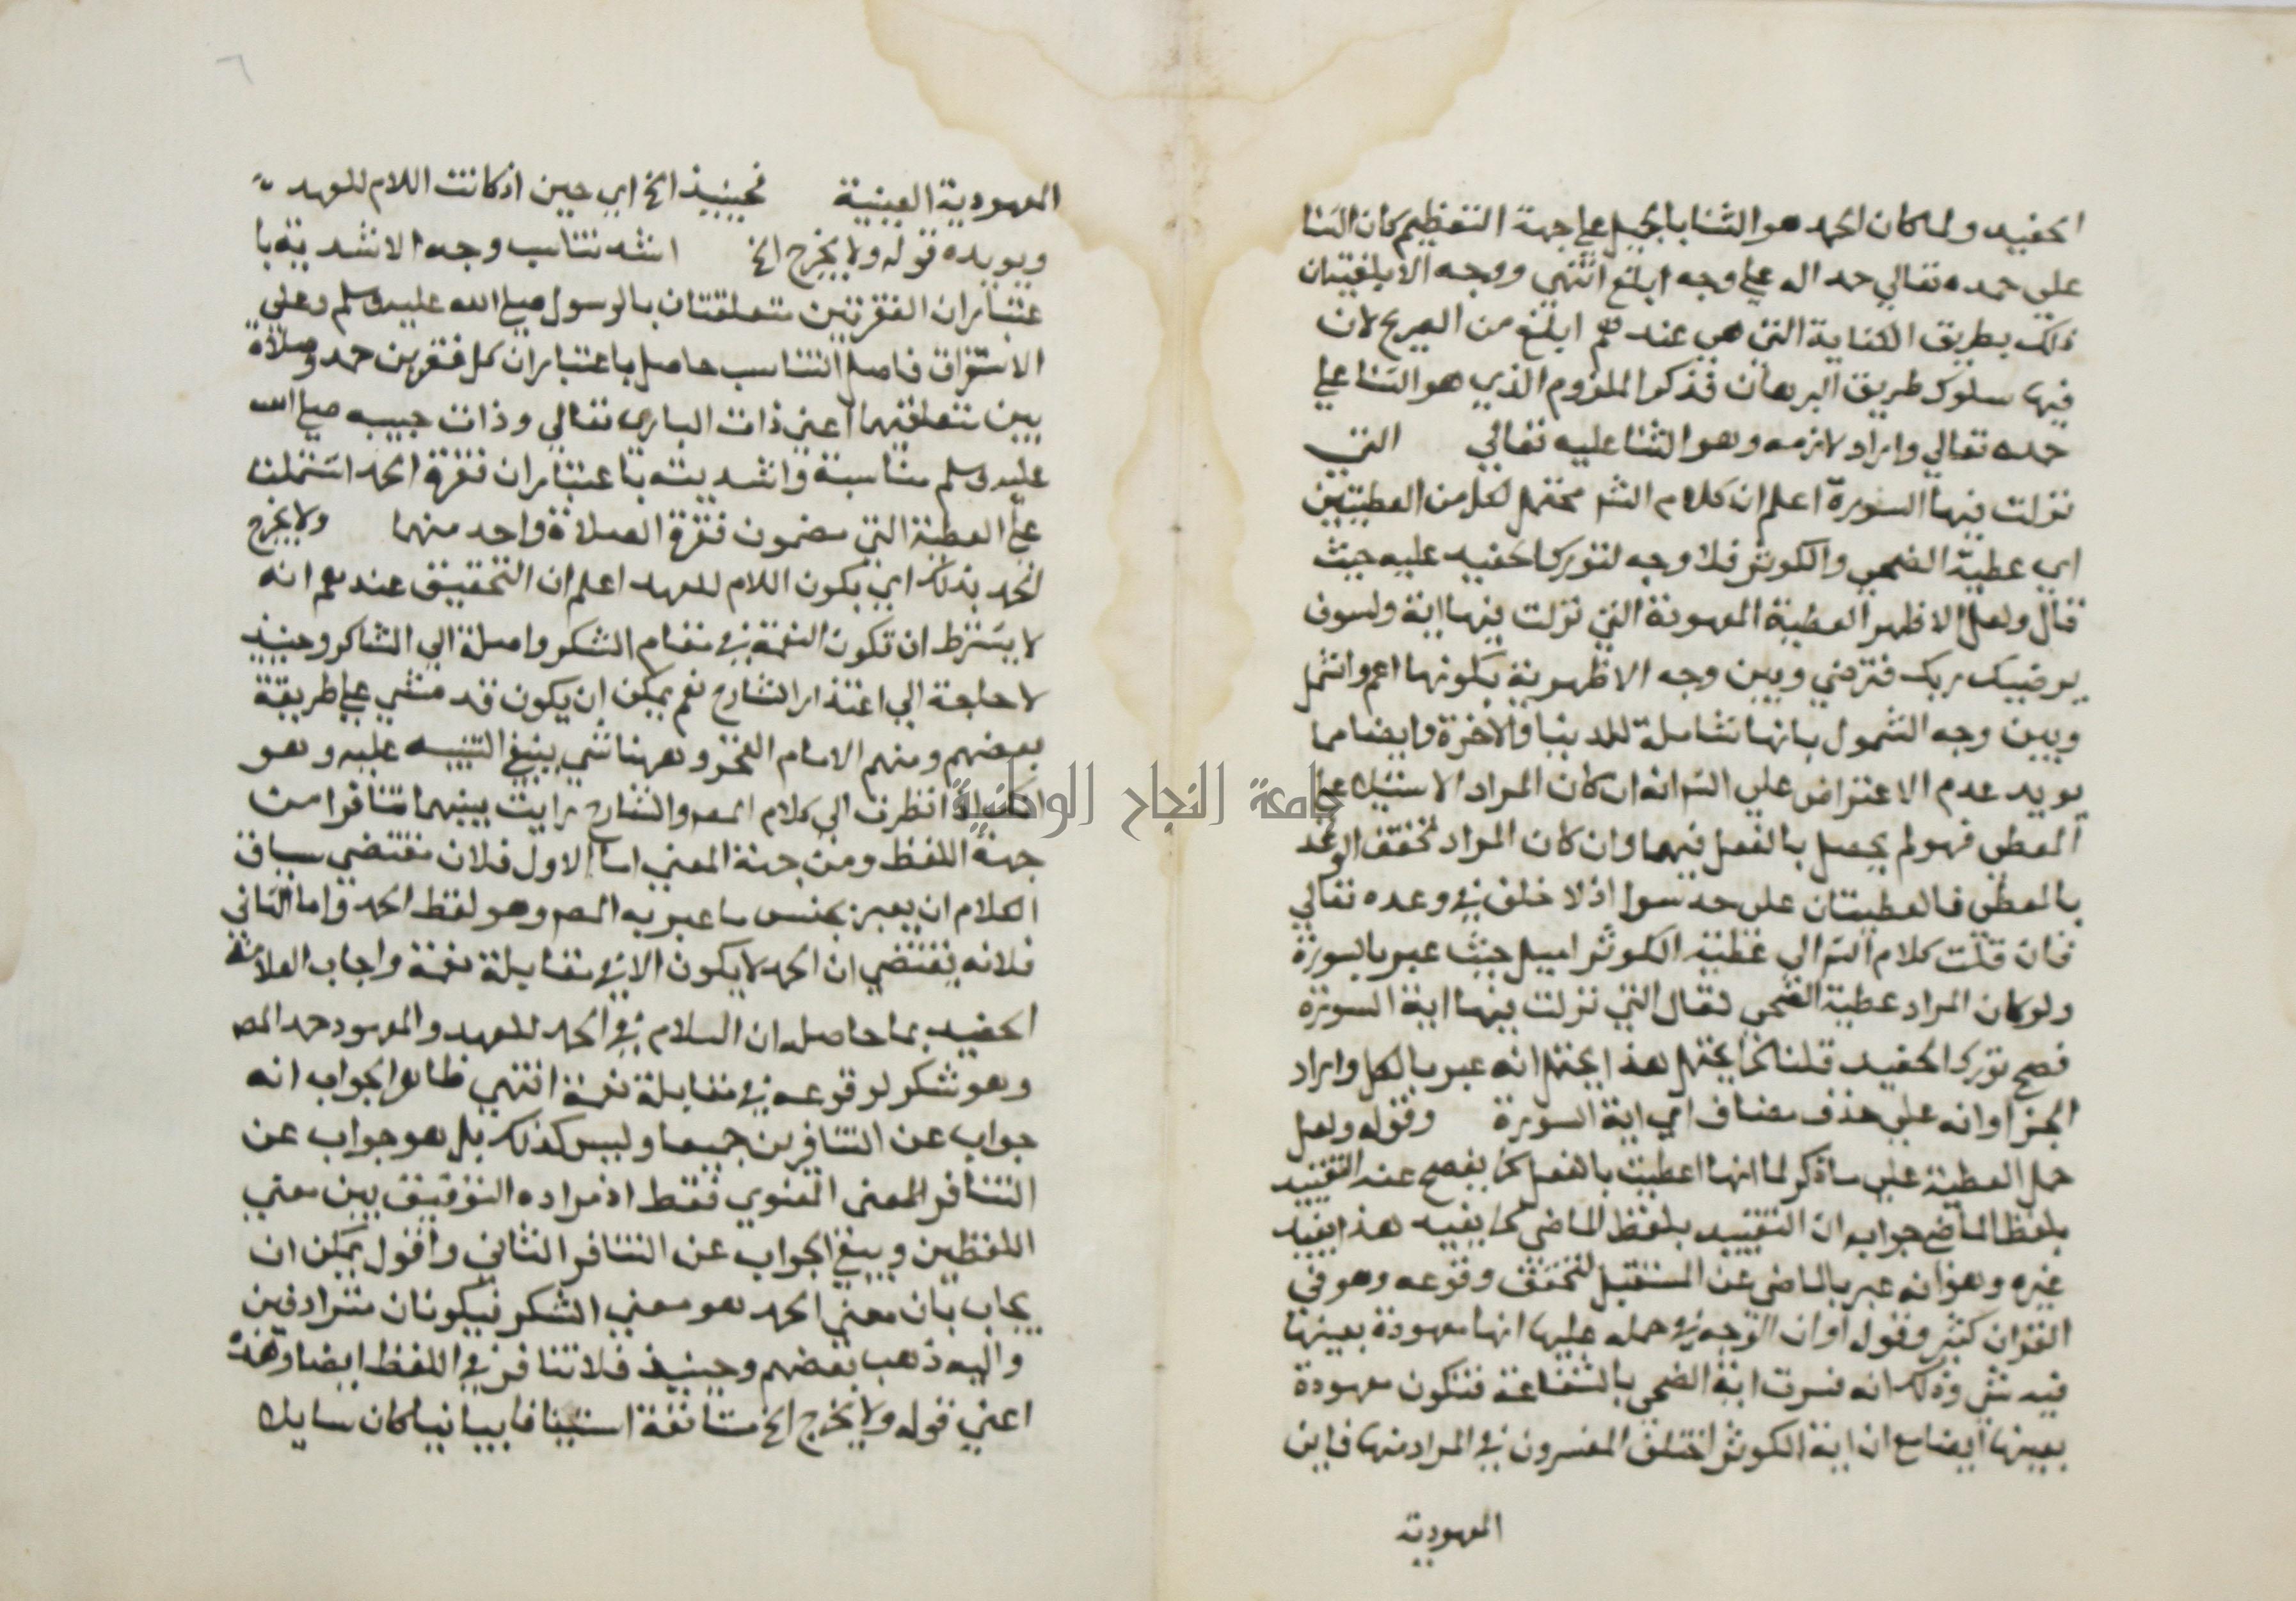 الحفيد ولما كان الحمد هو الثنا بالجميل علي جهة التعظيم كان الثنا
علي حمده تعالي حمدا له علي وجه ابلغ انتهي ووجه الابلغيتان
ذلك بطريق الكناية التي هي عندهم ابلغ من الصريح لان
فيها سلوك طريق البرهان فذكر الملزوم الذي هو الثنا علي
حمده تعالي واراد لازمه وهو الثنا عليه تعالي التي
نزلت فيها السورة اعلم ان كلام الش محتمل لكل من العطيتين
اي عطية الضحي والكوثر فلا وجه لتورك الحفيد عليه حيث
قال ولعل الاظهر العطية المعهودة التي نزلت فيها اية ولسوف
يرضيك ربك فترضي وبين وجه الاظهرية بكونها اعم واشمل
وبين وجه الشمول بانها شاملة للدنيا والاخرة وايضا مما
يويد عدم الاعتراض علي الش انه ان كان المراد الاستيلا علي
المعطي فهو لم يحصل بالفعل فيهما وان كان المراد تحقق الوعد
بالمعطي فالعطيتان علي حد سوا اذ لا خلف في وعده تعالي
فان قلت كلام الش الي عطية الكوثر اميل حيث عبر بالسورة
ولو كان المراد عطية الضحي لقال التي نزلت فيها اية السورة
فصح تورك الحفيد قلنا كما يحتمل هذا يحتمل انه عبر بالكل واراد
الجزا وانه علي حذف مضاف اي اية السورة وقوله ولعل
حمل العطية علي ما ذكر لما انها اعطيت بالفعل كما يفصح عنه التقييد
بلفظ الماضي جوابه ان التقييد بلفظ الماضي كما يفيد هذا يفيد
غيره وهو انه عبر بالماضي عن المستقبل لتحقق وقوعه وهو في
القران كثير وقوله او ان الوجه في حمله عليها انها معهودة بعينها
فيه شي وذلك انه فسرت اية الضحي بالشفاعة فتكون معهودة
بعينها ايضا مع ان اية الكوثر اختلف المفسرون في المراد منها فاين
المعهودية
٦
المعهودية العينية فحينيذ الخ اي حين اذ كانت اللام للعهد
ويويده قوله ولا يخرج الخ اشد تناسب وجه الاشدية با
عتبار ان الفقرتين متعلقتان بالرسول صلي الله عليه وسلم وعلي
الاستغراق فاصل التناسب حاصل باعتبار ان كل فقرتين حمد وصلاة
بين متعلقيهما اعني ذات الباري تعالي وذات حبيبه صلي الله
عليه وسلم مناسبة واشديته باعتبار ان فقرة الحمد اشتملت
علي العطية التي مضمون فقرة الصلاة واحد منهما ولا يخرج
الحمد بذلك اي بكون اللام للعهد اعلم ان التحقيق عندهم انه
لا يشترط ان تكون النعمة في مقام الشكر واصلة الي الشاكر وحينيذ
لا حاجة الي اعتذار الشارح نعم يمكن ان يكون قد مشي علي طريقة
بعضهم ومنهم الامام الفخر وههنا شي ينبغي التنبيه عليه وهو
انك اذا نظرت الي كلام المص والشارح رايت بينهما تنافرا من
جهة اللفظ ومن جهة المعني اما الاول فلان مقتضي سياق
الكلام ان يعبر بجنس ما عبر به المص وهو لفظ الحمد واما الثاني
فلانه يقتضي ان الحمد لا يكون الا في مقابلة نعمة واجاب العلامة
الحفيد بما حاصله ان اللام في الحمد للعهد والمعهود حمد المص
وهو شكر لوقوعه في مقابلة نعمة انتهي ظاهر الجواب انه
جواب عن التنافرين جميعا وليس كذلك بل هو جواب عن
التنافر المعني المعنوي فقط اذ مراده التوفيق بين معني
اللفظين ويبقي الجواب عن التنافر الثاني واقول يمكن ان
يجاب بان معني الحمد هو معني الشكر فيكونان مترادفين
واليه ذهب بعضهم وحينيذ فلا تنافر في اللفظ ايضا وهذه
اعني قوله ولا يخرج الخ مستانفة استينافا بيانيا كان سايلا
جامعة النجاح الوطنية